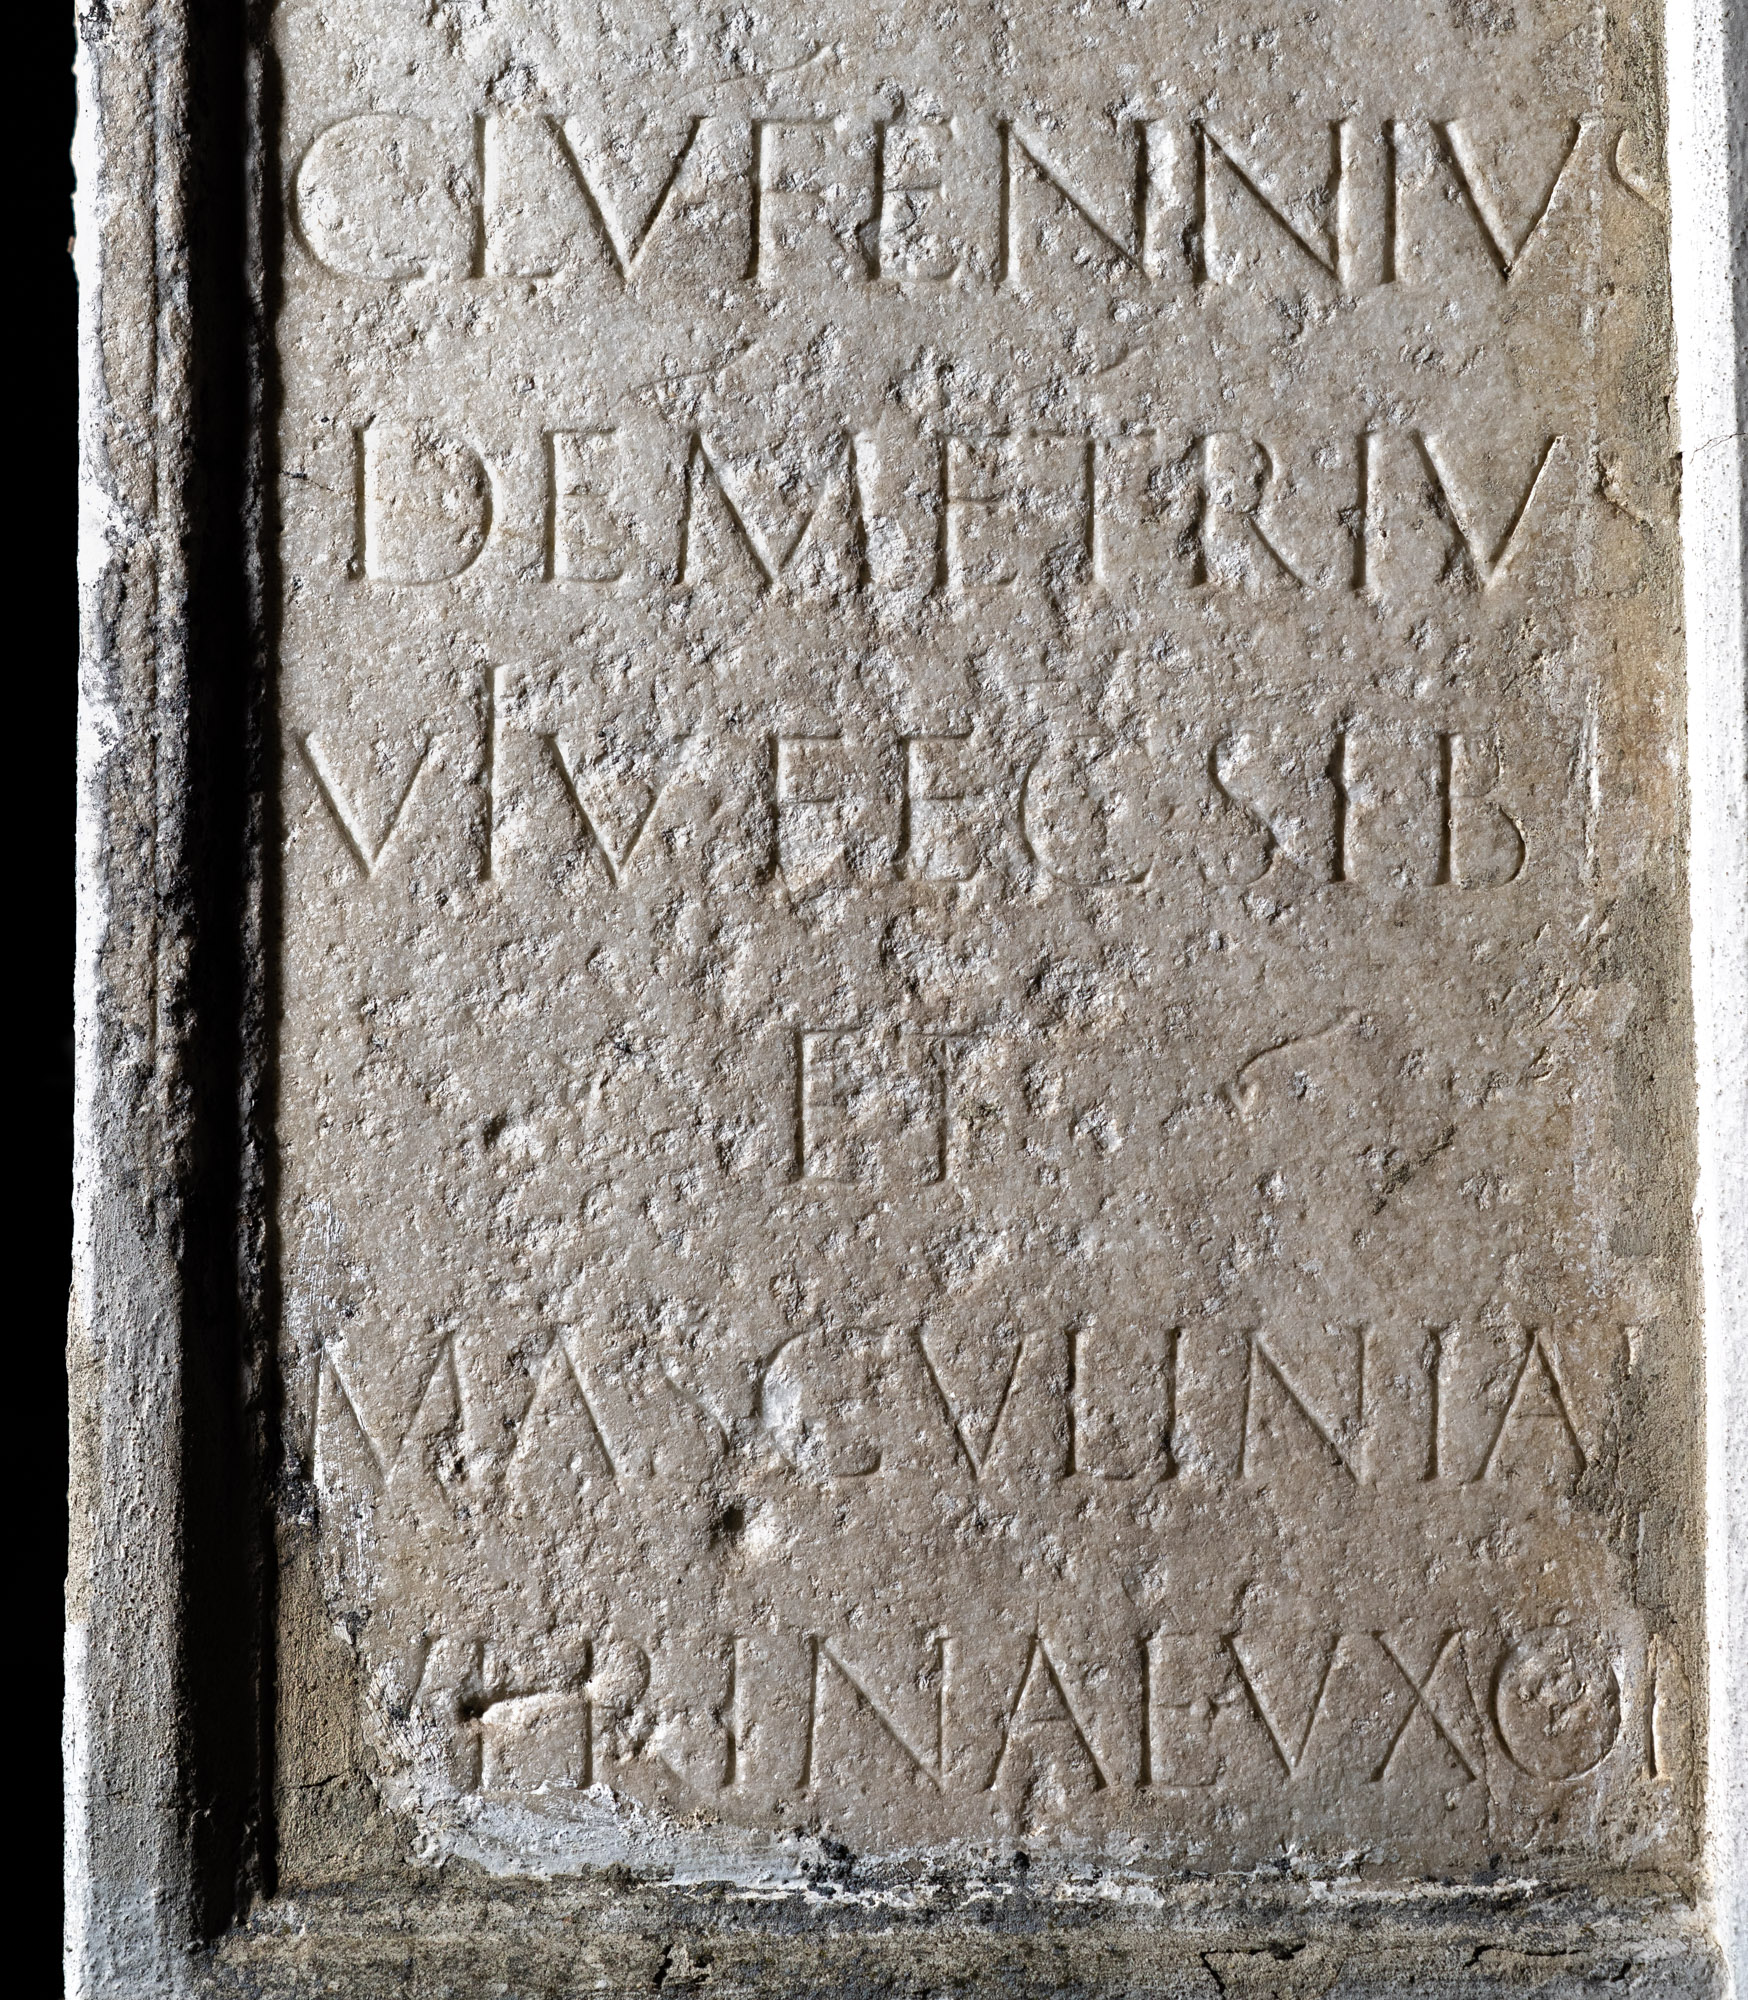 C LVFENNIVS
DEMETRIVS
VIV FEC SIBI
ET
MASCVLINIAI
VRINAE VXORI